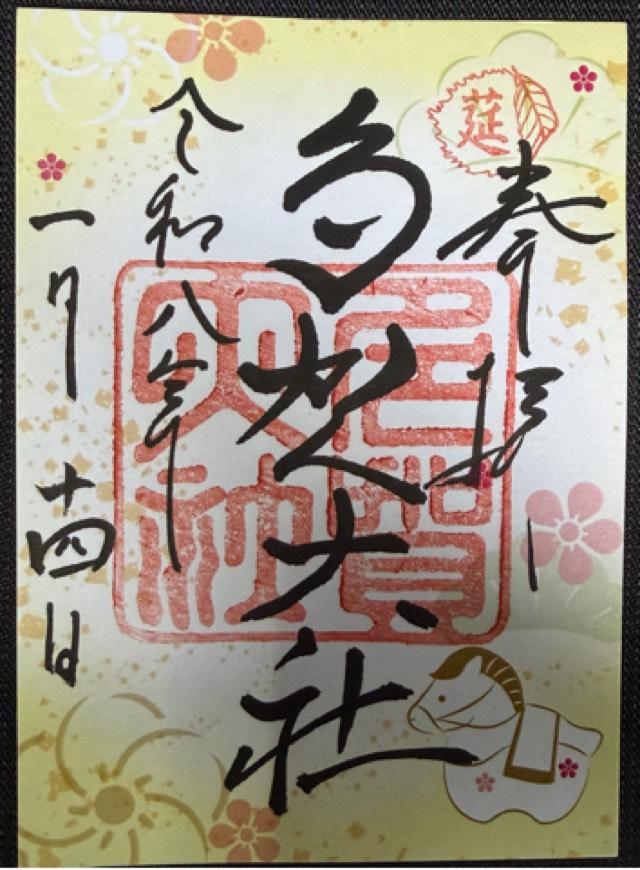 莚
奉拝
多賀大社
多賀
大社
令和八年
一月十四日